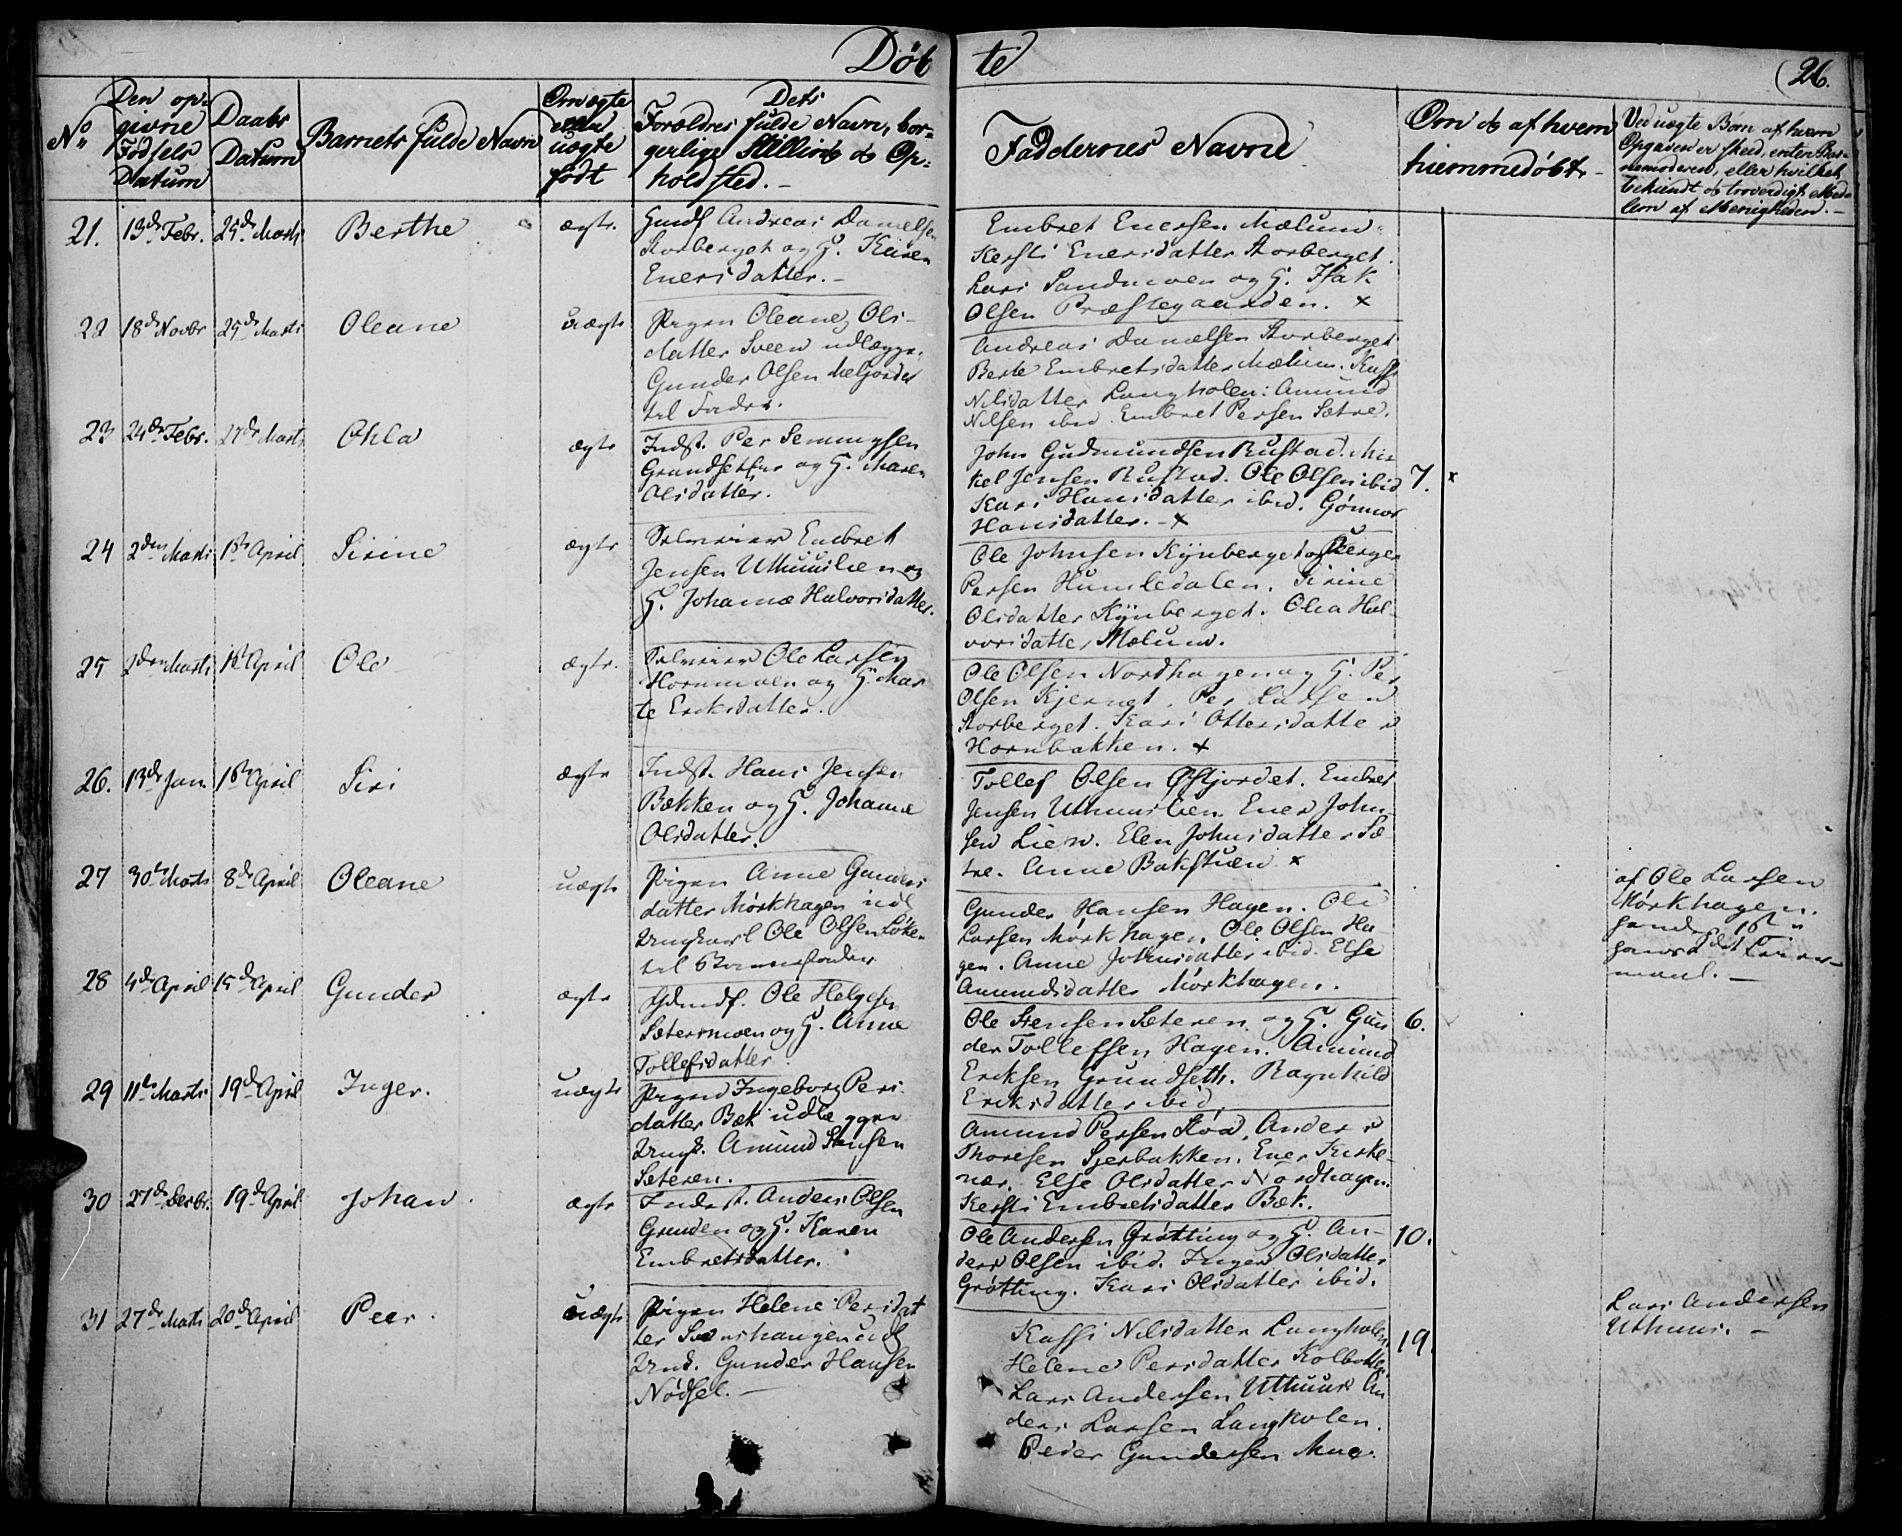 Døbte
(26.
No
Den op-
givne
Fødsels
Datum
Daabs
Datum
Barnets fulde Navn
Om ægte
eller
uægte
født
Dets
Forældres fulde Navn, bor-
gerlige Stilling og Op-
holdsted. -
Faddernes Navne
Om og af hvem
hiemmedøbt -
Ved uægte Børn af hvem
Opgaven er skeed, enten Bar-
nemoderen, eller hvilket
bekiendt og troverdigt Med-
lem af Menigheden. -
21. 13de Febr. 25de Marts Berthe ægte.
Andreas Danielsen
Storberget og H. Karen
Enersdatter. -
Embret Enersen Mælum.
Kersti Enersdatter Storberget.
Lars Sandmoen og H. Isak
Olsen Præstegaarden. x
22 18de Novbr 25de Marts Oleane uægte
Pigen Oleane Ols-
datter Sveen udlægger
Gunder Olsen
til Fader.
Andreas Danielsen Storberget
Berte Embretsdatter Mælum.
Nilsdatter Langholen: Amund
Nilsen ibid. Embret Persen Sætre.
23 24de Febr. 27de Marts ægte
Indst. Per Semmingsen
Grundset og H. Maren
Olsdatter.
John Gudmundsen Rustad. Mik-
kel Jensen Rustad. Ole Olsen ibid
Kari Hansdatter ibid. Gønnor
Hansdatter. - x
7. x
24 2den Marts 1ste April Sirine ægte
Selveier Embret
Jensen Uthuuslien og
H. Johanne Halvorsdatter.
Ole Johnsen Kynberget og Børger
Persen Humledalen. Sirine
Olsdatter Kynberget. Olea Hal-
vorsdatter Mælum.
25 2den Marts 1ste April Ole ægte.
Selveier Ole Larsen
Hornmoen og H. Mar
te Eriksdatter.
Ole Olsen Nordhagen og H. Per
Olsen Kjernet. Per Larsen
Storberget. Kari Ottersdatter
Hornbakken. x
26. 13de Jan. 1ste April Siri ægte
Indst. Hans Jensen
Bækken og H. Johanne
Olsdatter.
Tollef Olsen Østjordet. Embret
Jensen Uthuuslien. Ener John-
sen Lien. Elen Johnsdatter Sæ-
tre. Anne Bakstuen x
27 30te Marts 8de April Oleane uægte
Pigen Anne Gunders
datter Mørkhagen udl
Ungkarl Ole Olsen Løken
til Barnefader
Gunder Hansen Hagen. Ole
Larsen Mørkhagen Ole Olsen Ha-
gen. Anne Johnsdatter ibid. Else
Amundsdatter Mørkhagen.
af Ole Larsen
Mørkhagen.
hendes 1ste
hans 2det Leier-
maal. -
28 4de April 15de April Gunder ægte
Ole Helgesen
Sætermoen og H. Anne
Tollefsdatter
Ole Stensen Sæteren og H. Gun
der Tollefsen Hagen. Amund
Eriksen Grundseth. Ragnhild
Eriksdatter ibid.
6.
29 11te Marts 19de April Inger. uægte
Pigen Ingeborg Pers
datter Bæk udlægger
Ungk. Amund Stensen
Sæteren.
Amund Persen Stød, Anders
Thoresen Sjerbakken. Ener Kirke-
nær. Else Olsdatter Nordhagen.
Kersti Embretsdatter Bæk.
30 27de Decbr. 19de April Johan ægte
Inderst. Anders Olsen
Grunden og H. Karen
Embretsdatter.
Ole Andersen Grøtting og H. An-
ders Olsen ibid. Inger Olsdatter
Grøtting. Kari Olsdatter ibid.
10.
31 27de Marts 20de April Peer. uægte
Pigen Helene Persdat
ter Svenshaugen udl
Ungk. Gunder Hansen
Nødsel. -
Nilsdatter Langholen,
Helene Persdatter Kolbotten
Lars Andersen Uthuus An
ders Larsen Langholen.
Peder Gundersen Moe.
19.
Lars Andersen
Uthuus. -